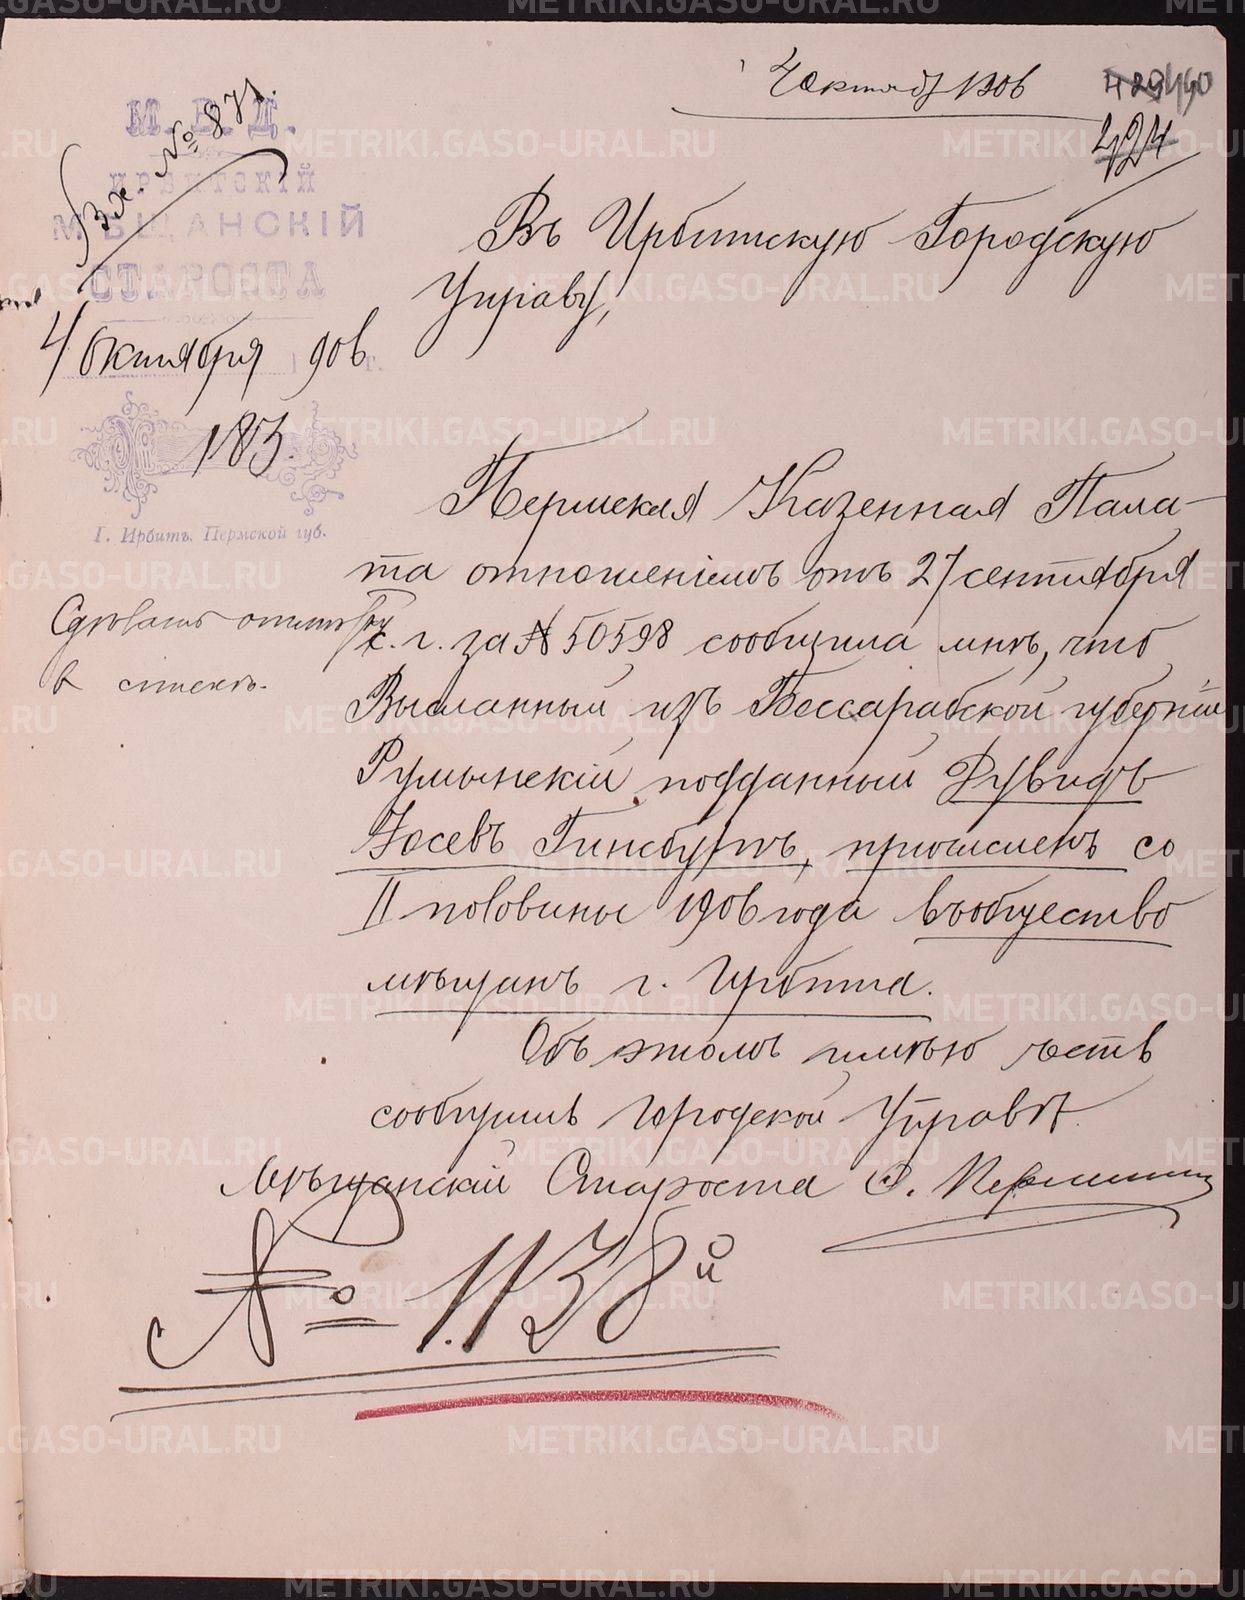 4 октяб 1906
429 490
424
М. В. Д.
ИРБИТСКІЙ
МѢЩАНСКІЙ
СТАРОСТА
Вх. № 871.
4 Октября 1906 г.
183.
Г. Ирбитъ, Пермской губ.
Въ Ирбитскую Городскую
Управу,
Пермская Казенная Пала-
та отношеніемъ отъ 27 сентября
с. г. за № 50598 сообщила мнѣ, что
Высланный изъ Бессарабской губерніи
Румынскій подданный Рувидъ
Іосевъ Гинсбургъ, причисленъ со
II половины 1906 года въ общество
мѣщанъ г. Ирбита.
Объ этомъ имѣю честь
сообщить Городской Управѣ.
Мѣщанскій Староста
Сдѣлать отмѣтку
в
№ 1138й
METRIKI.GASO-URAL.RU